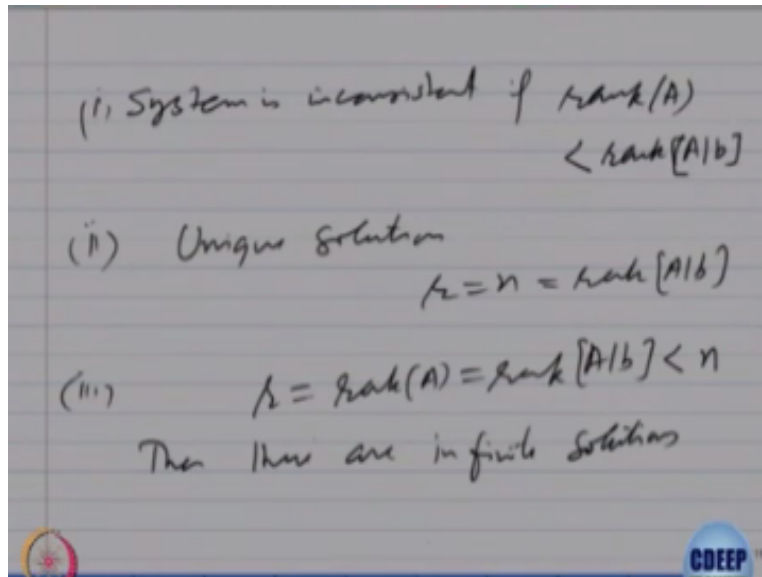 (i, System is inconsistent if rank(A)
< rank[A|b]
(ii) Unique Solution
r = n = rank [A|b]
(iii) r = rak(A) = rank [A|b] < n
Then there are infinite Solutions
CDEEP